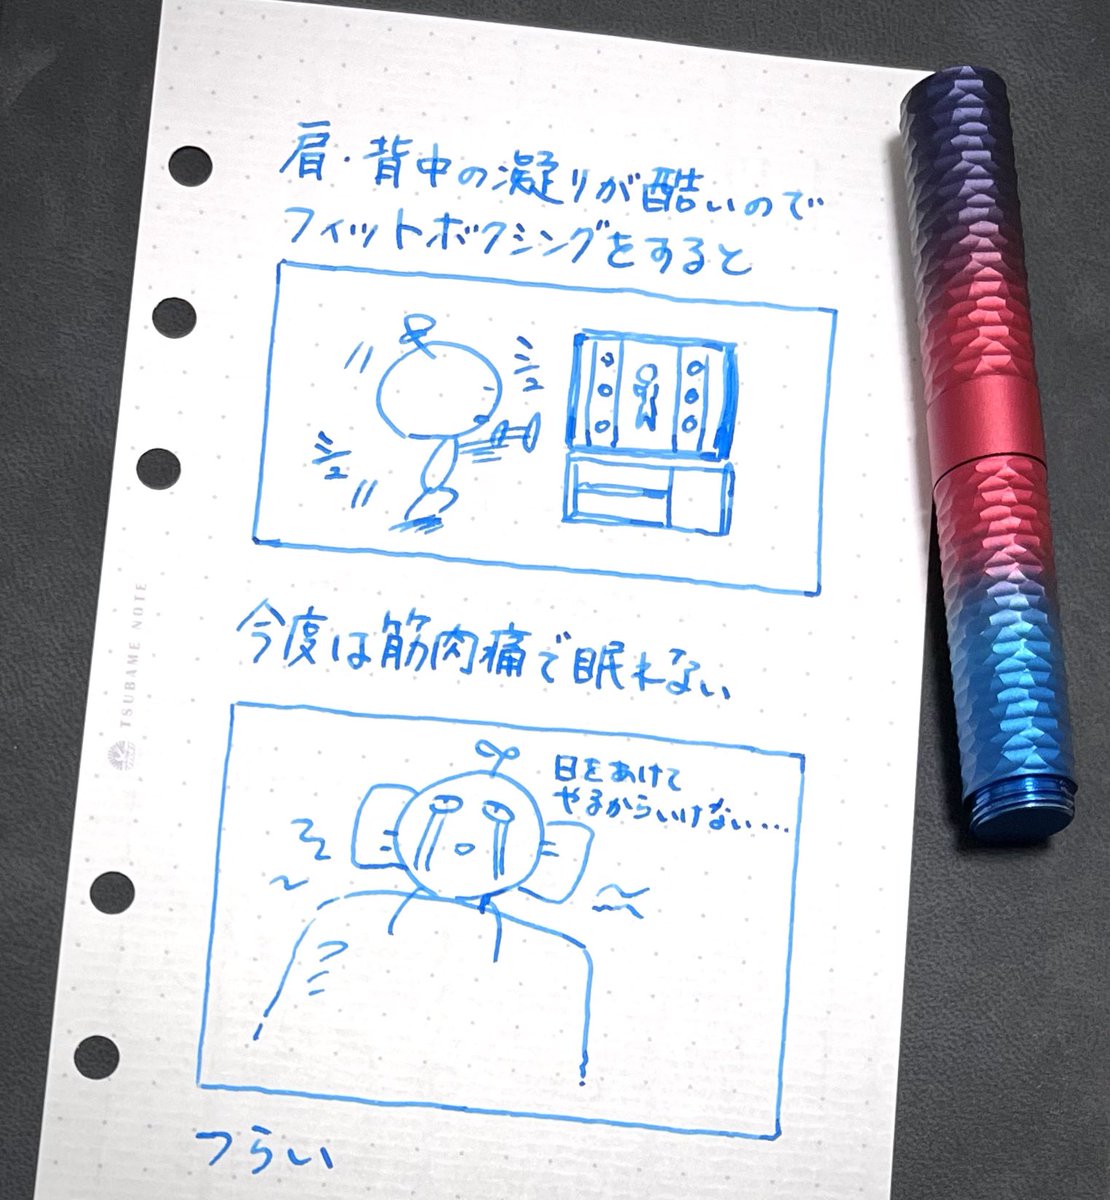 肩・背中の凝りが酷いので
フィットボクシングをすると
シュ
シュ
今度は筋肉痛で眠れない
日をあけて
やるからいけない…
つらい
TSUBAME NOTE